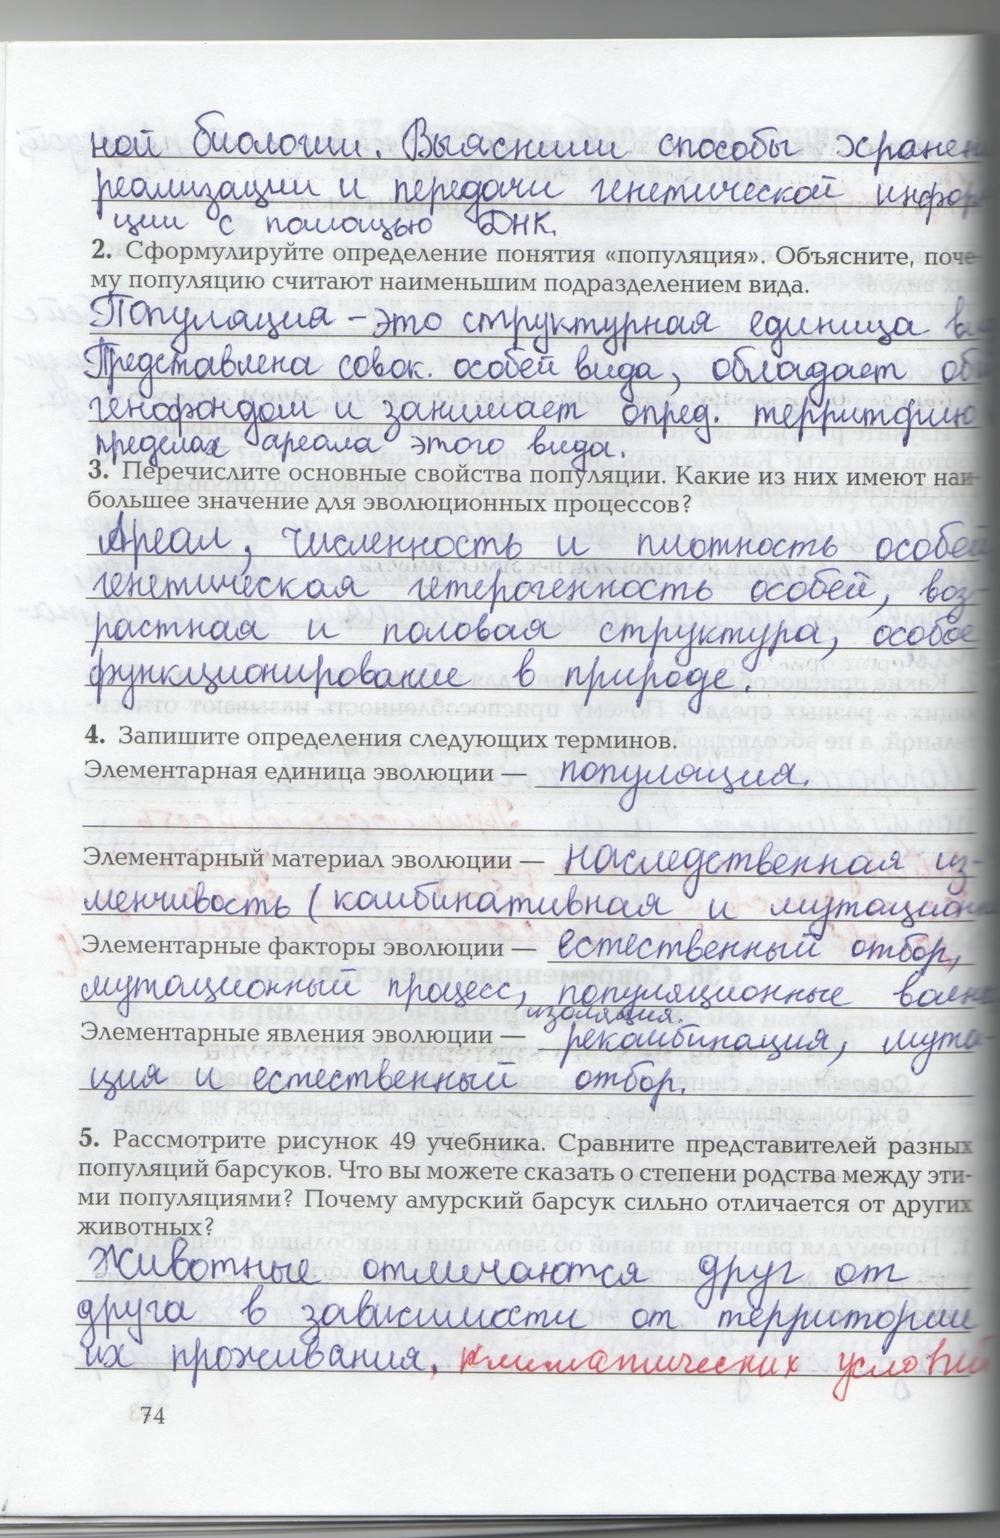 ной биологии. Выяснили способы хранени
реализации и передачи генетической инфор
ции с помощью ДНК.
2. Сформулируйте определение понятия «популяция». Объясните, поче-
му популяцию считают наименьшим подразделением вида.
Популяция – это структурная единица ви
Представлена совок. особей вида, обладает общ
генофондом и занимает опред. территорию
пределах ареала этого вида.
3. Перечислите основные свойства популяции. Какие из них имеют наи-
большее значение для эволюционных процессов?
Ареал, численность и плотность особей
генетическая гетерогенность особей, воз-
растная и половая структура, особое
функционирование в природе.
4. Запишите определения следующих терминов.
Элементарная единица эволюции — популяция.
Элементарный материал эволюции — наследственная из-
менчивость (комбинативная и мутационн
Элементарные факторы эволюции — естественный отбор,
мутационный процесс, популяционные волны
изоляция.
Элементарные явления эволюции — рекомбинация, мута-
ция и естественный отбор.
5. Рассмотрите рисунок 49 учебника. Сравните представителей разных
популяций барсуков. Что вы можете сказать о степени родства между эти-
ми популяциями? Почему амурский барсук сильно отличается от других
животных?
Животные отличаются друг от
друга в зависимости от территории
их проживания, климатических условий
74